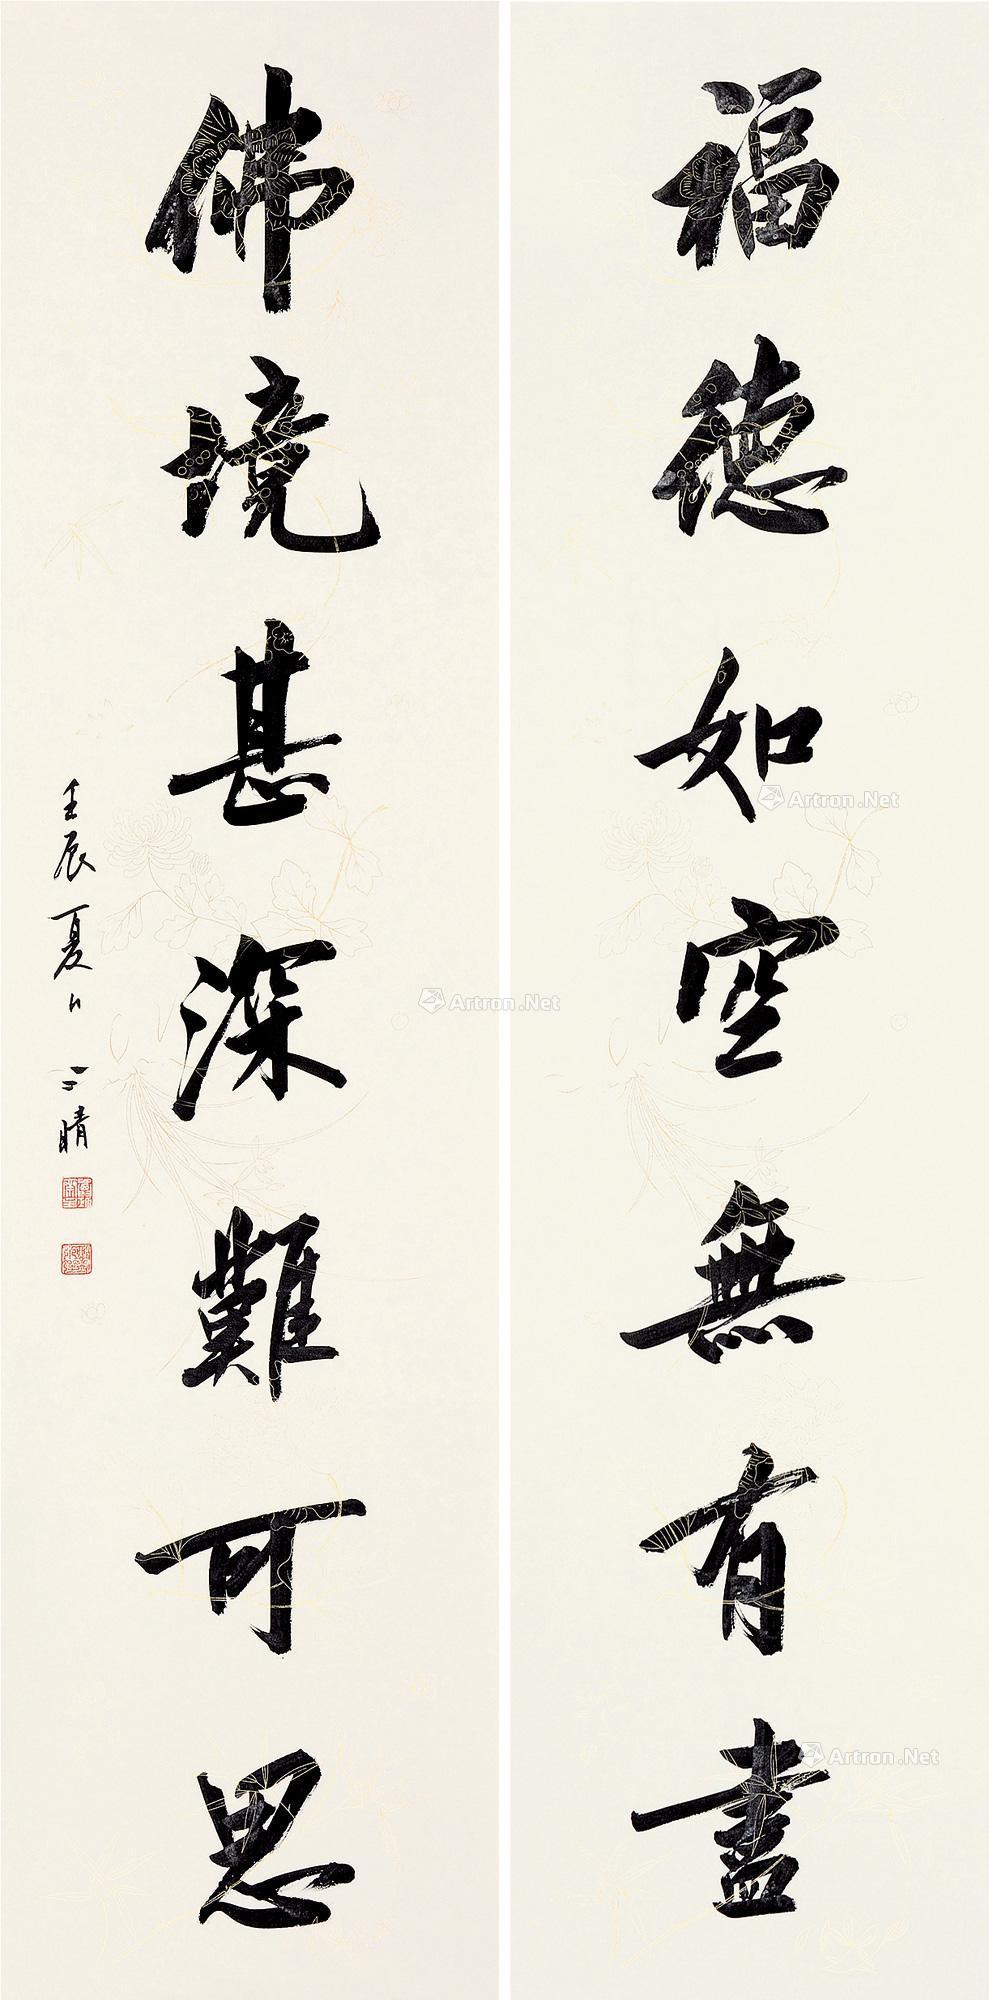 福德如空無有盡
佛境甚深難可思
壬辰夏日
晴
Artron.Net
Artron.Net
Artron.Net